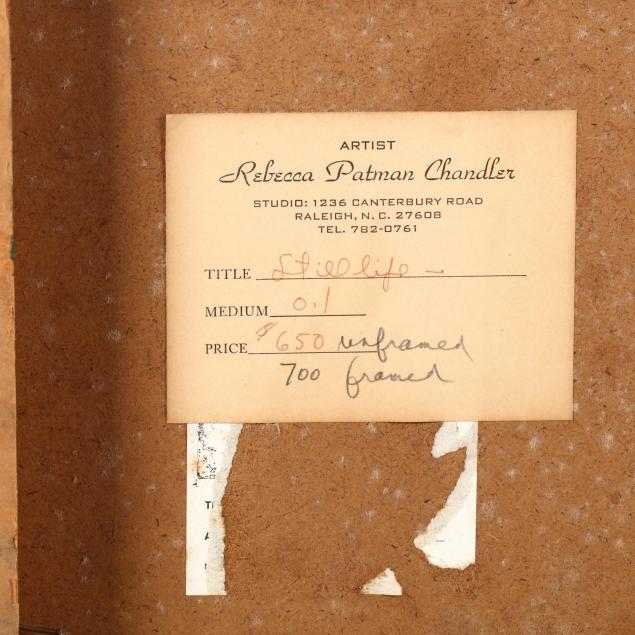 ARTIST
Rebecca Patman Chandler
STUDIO: 1236 CANTERBURY ROAD
RALEIGH, N. C. 27608
TEL. 782-0761
TITLE Still life –
MEDIUM oil
PRICE $650 unframed
700 framed
T
A